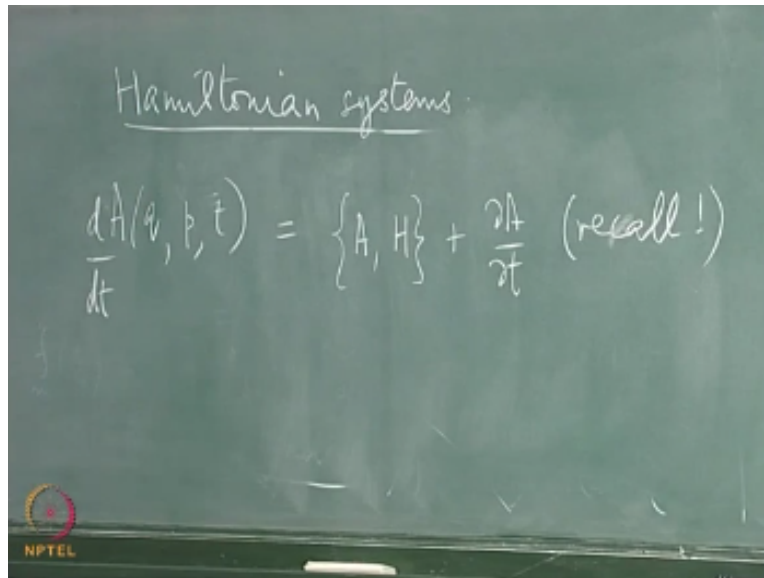 Hamiltonian systems.
dA(q, p, t)/dt = {A, H} + ∂A/∂t (recall!)
NPTEL